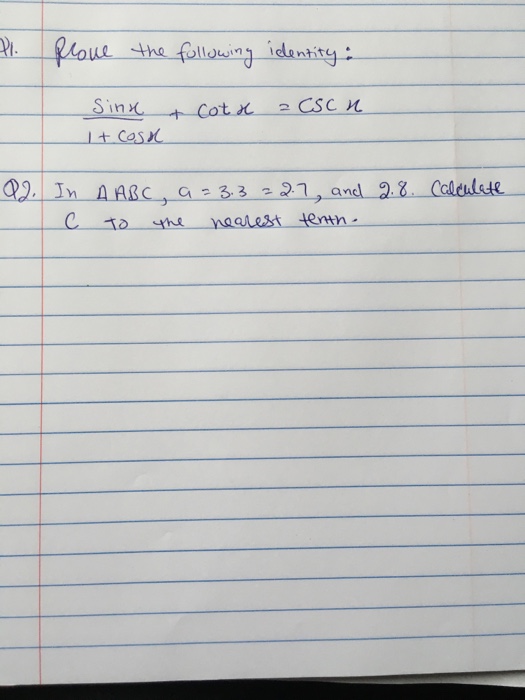 Q1. Prove the following identity:
sinx
1 + cosx
+ cotx = cscx
Q2. In ΔABC, a = 3.3 = 2.7, and 2.8. Calculate
C to the nearest tenth.